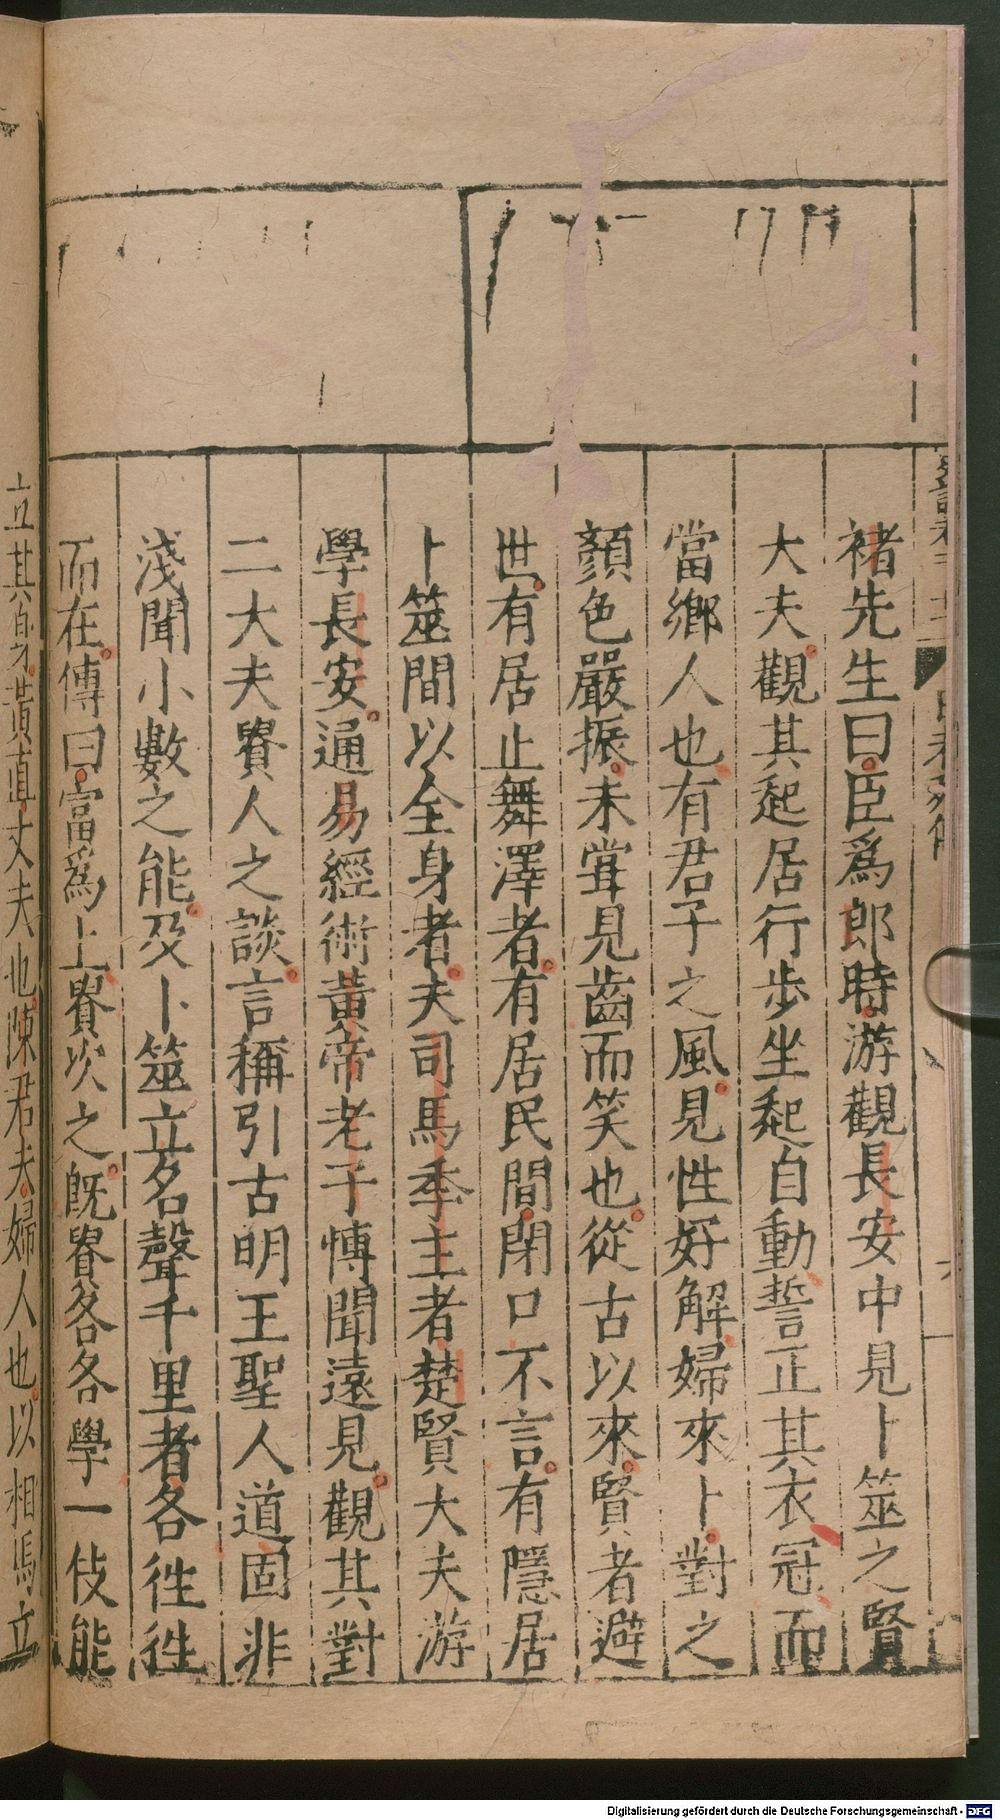 褚先生曰臣爲郎時游觀長安中見卜筮之賢
大夫觀其起居行步坐起自動誓正其衣冠而
當鄉人也有君子之風見性好解婦來卜對之
顏色嚴振未甞見齒而笑也從古以來賢者避
世有居止舞澤者有居民間閉口不言有隱居
卜筮間以全身者夫司馬季主者楚賢大夫游
學長安通易經術黃帝老子愽聞遠見觀其對
二大夫貴人之談言稱引古明王聖人道固非
淺聞小數之能及卜筮立名聲千里者各徃徃
而在傳曰富爲上貴次之旣貴各各學一伎能
立其身黃直丈夫也陳君夫婦人也以相馬立
Digitalisierung gefördert durch die Deutsche Forschungsgemeinschaft - DFG